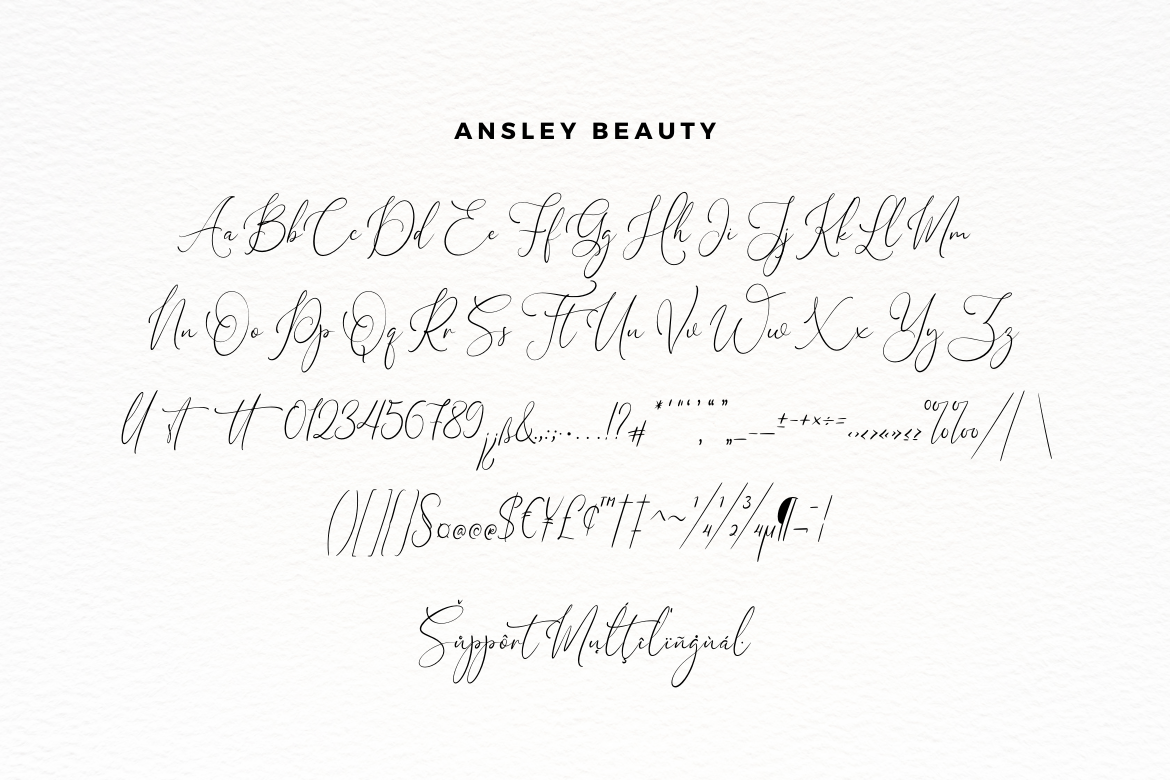 ANSLEY BEAUTY
Aa Bb Cc Dd Ee Ff Gg Hh Ii Jj Kk Ll Mm
Nn Oo Pp Qq Rr Ss Tt Uu Vv Ww Xx Yy Zz
ll t tt 0123456789 ¡¿ß&.,:;·•...!?# *'"‘’“” ‚ „_–— ±−+×÷= ‹›<>«»≤≥ %‰ / | \
()[]{}§¤@©®$€¥£¢™†‡^~¼½¾µ¶¬¯¦
Šůppôrt Mụĺţêlïñġùáŀ